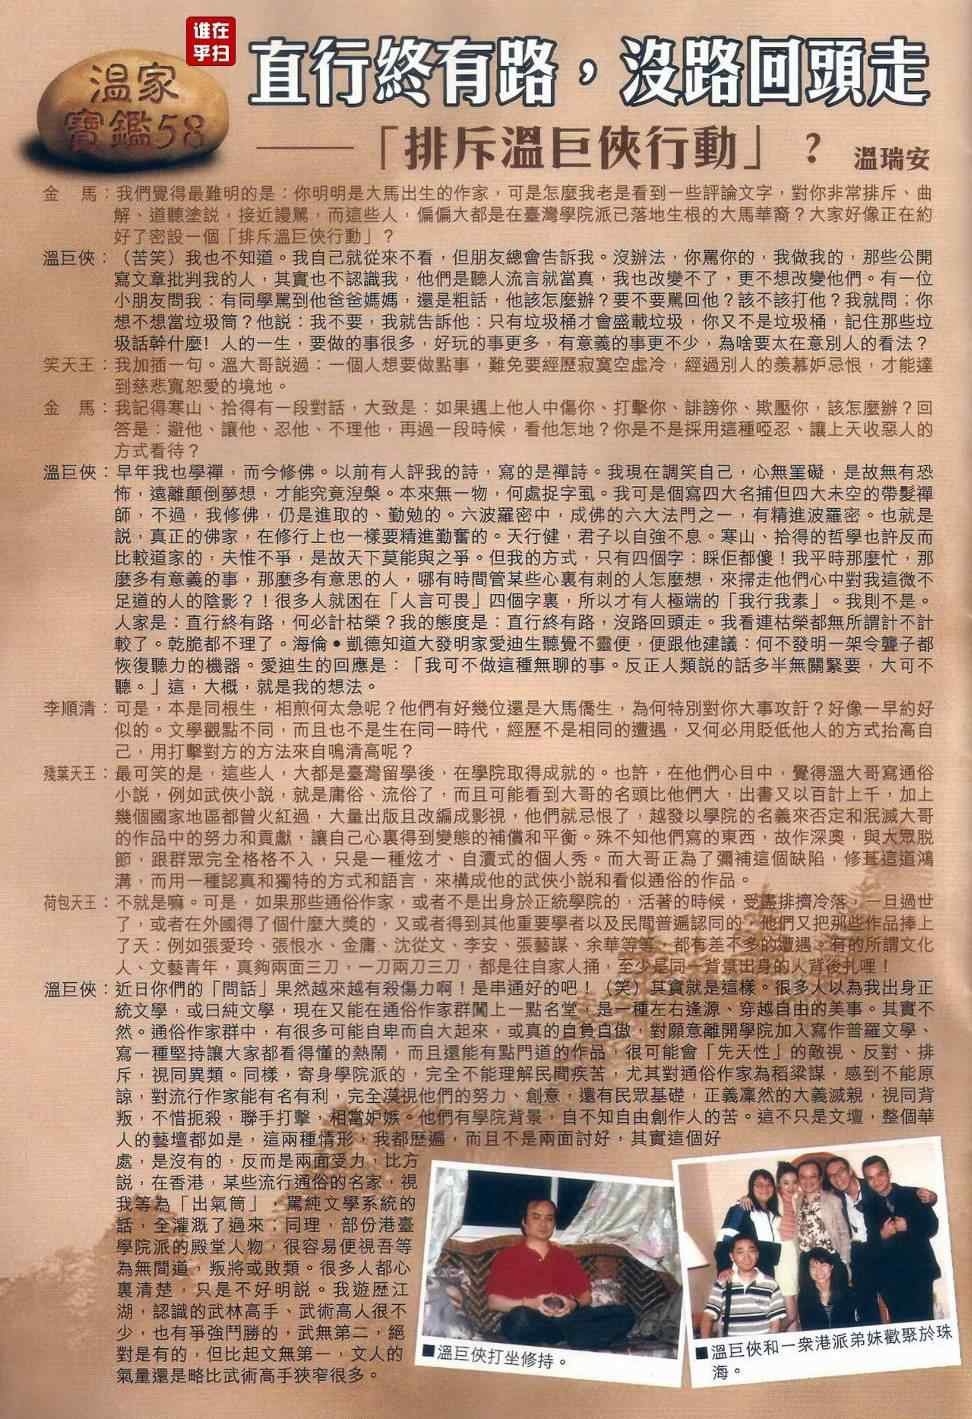 谁在
乎扫
溫家
寶鑑58
直行終有路，沒路回頭走
——「排斥溫巨俠行動」？ 溫瑞安
金　馬：我們覺得最難明的是：你明明是大馬出生的作家，可是怎麼我老是看到一些評論文字，對你非常排斥、曲
解、道聽塗說，接近謾罵，而這些人，偏偏大都是在臺灣學院派已落地生根的大馬華裔？大家好像正在約
好了密設一個「排斥溫巨俠行動」？
溫巨俠：（苦笑）我也不知道。我自己就從來不看，但朋友總會告訴我。沒辦法，你罵你的，我做我的，那些公開
寫文章批判我的人，其實也不認識我，他們是聽人流言就當真，我也改變不了，更不想改變他們。有一位
小朋友問我：有同學罵到他爸爸媽媽，還是粗話，他該怎麼辦？要不要罵回他？該不該打他？我就問：你
想不想當垃圾筒？他說：我不要，我就告訴他：只有垃圾桶才會盛載垃圾，你又不是垃圾桶，記住那些垃
圾話幹什麼！人的一生，要做的事很多，好玩的事更多，有意義的事更不少，為啥要太在意別人的看法？
笑天王：我加插一句。溫大哥說過：一個人想要做點事，難免要經歷寂寞空虛冷，經過別人的羨慕妒忌恨，才能達
到慈悲寬恕愛的境地。
金　馬：我記得寒山、拾得有一段對話，大致是：如果遇上他人中傷你、打擊你、誹謗你、欺壓你，該怎麼辦？回
答是：避他、讓他、忍他、不理他，再過一段時候，看他怎地？你是不是採用這種啞忍、讓上天收惡人的
方式看待？
溫巨俠：早年我也學禪，而今修佛。以前有人評我的詩，寫的是禪詩。我現在調笑自己，心無罣礙，是故無有恐
怖，遠離顛倒夢想，才能究竟涅槃。本來無一物，何處捉字虱。我可是個寫四大名捕但四大未空的帶髮禪
師，不過，我修佛，仍是進取的、勤勉的。六波羅密中，成佛的六大法門之一，有精進波羅密。也就是
說，真正的佛家，在修行上也一樣要精進勤奮的。天行健，君子以自強不息。寒山、拾得的哲學也許反而
比較道家的，夫惟不爭，是故天下莫能與之爭。但我的方式，只有四個字：睬佢都傻！我平時那麼忙，那
麼多有意義的事，那麼多有意思的人，哪有時間管某些心裏有刺的人怎麼想，來掃走他們心中對我這微不
足道的人的陰影？！很多人就困在「人言可畏」四個字裏，所以才有人極端的「我行我素」。我則不是。
人家是：直行終有路，何必計枯榮？我的態度是：直行終有路，沒路回頭走。我看連枯榮都無所謂計不計
較了。乾脆都不理了。海倫●凱德知道大發明家愛迪生聽覺不靈便，便跟他建議：何不發明一架令聾子都
恢復聽力的機器。愛迪生的回應是：「我可不做這種無聊的事。反正人類說的話多半無關緊要，大可不
聽。」這，大概，就是我的想法。
李順清：可是，本是同根生，相煎何太急呢？他們有好幾位還是大馬僑生，為何特別對你大事攻訐？好像一早約好
似的。文學觀點不同，而且也不是生在同一時代，經歷不是相同的遭遇，又何必用貶低他人的方式抬高自
己，用打擊對方的方法來自鳴清高呢？
殘葉天王：最可笑的是，這些人，大都是臺灣留學後，在學院取得成就的。也許，在他們心目中，覺得溫大哥寫通俗
小說，例如武俠小說，就是庸俗、流俗了，而且可能看到大哥的名頭比他們大，出書又以百計上千，加上
幾個國家地區都曾火紅過，大量出版且改編成影視，他們就忌恨了，越發以學院的名義來否定和泯滅大哥
的作品中的努力和貢獻，讓自己心裏得到變態的補償和平衡。殊不知他們寫的東西，故作深奧，與大眾脫
節，跟群眾完全格格不入，只是一種炫才、自瀆式的個人秀。而大哥正為了彌補這個缺陷，修葺這道鴻
溝，而用一種認真和獨特的方式和語言，來構成他的武俠小說和看似通俗的作品。
荷包天王：不就是嘛。可是，如果那些通俗作家，或者不是出身於正統學院的，活著的時候，受盡排擠冷落，一旦過世
了，或者在外國得了個什麼大獎的，又或者得到其他重要學者以及民間普遍認同的，他們又把那些作品捧上
了天：例如張愛玲、張恨水、金庸、沈從文、李安、張藝謀、余華等等，都有差不多的遭遇。有的所謂文化
人、文藝青年，真夠兩面三刀，一刀兩刀三刀，都是往自家人捅，至少是同一背景出身的人背後扎哩！
溫巨俠：近日你們的「問話」果然越來越有殺傷力啊！是串通好的吧！（笑）其實就是這樣。很多人以為我出身正
統文學，或曰純文學，現在又能在通俗作家群闖上一點名堂，是一種左右逢源、穿越自由的美事。其實不
然。通俗作家群中，有很多可能自卑而自大起來，或真的自負自傲，對願意離開學院加入寫作普羅文學、
寫一種堅持讓大家都看得懂的熱鬧，而且還能有點門道的作品，很可能會「先天性」的敵視、反對、排
斥，視同異類。同樣，寄身學院派的，完全不能理解民間疾苦，尤其對通俗作家為稻粱謀，感到不能原
諒，對流行作家能有名有利，完全漠視他們的努力、創意，還有民眾基礎，正義凜然的大義滅親，視同背
叛，不惜扼殺，聯手打擊，相當妒嫉。他們有學院背景，自不知自由創作人的苦。這不只是文壇，整個華
人的藝壇都如是，這兩種情形，我都歷遍，而且不是兩面討好，其實這個好
處，是沒有的，反而是兩面受力。比方
說，在香港，某些流行通俗的名家，視
我等為「出氣筒」，罵純文學系統的
話，全灌溉了過來；同理，部份港臺
學院派的殿堂人物，很容易便視吾等
為無間道，叛將或敗類。很多人都心
裏清楚，只是不好明說。我遊歷江
湖，認識的武林高手、武術高人很不
少，也有爭強鬥勝的，武無第二，絕
對是有的，但比起文無第一，文人的
氣量還是略比武術高手狹窄很多。
■溫巨俠打坐修持。
■溫巨俠和一眾港派弟妹歡聚於珠
海。